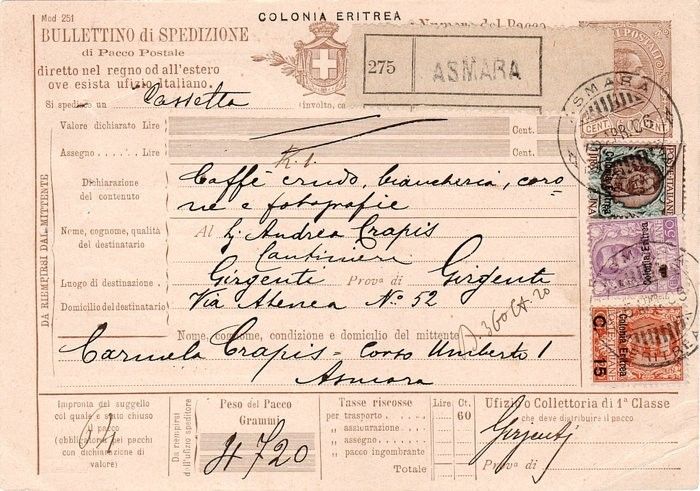 Mod 251
COLONIA ERITREA
BULLETTINO di SPEDIZIONE
di Pacco Postale
diretto nel regno od all'estero
ove esista ufizio Italiano.
Numero del Pacco
275 ASMARA
Si spedisce un Cassetta involto, ca
Valore dichiarato Lire Cent.
Assegno . . . Lire Cent.
K. 1
Dichiarazione
del contenuto
Caffè crudo, biancheria, coro-
ne e fotografie
Nome, cognome, qualità
del destinatario
Al Sg. Andrea Crapis
Cantiniere
Luogo di destinazione . Girgenti Prov.a di Girgenti
Domicilio del destinatario Via Atenea No 52
DA RIEMPIRSI DAL MITTENTE
Nome, cognome, condizione e domicilio del mittente
Carmela Crapis - Corso Umberto 1
Asmara
Impronta del suggello
col quale è stato chiuso
il pacco
(obbligatoria pei pacchi
con dichiarazione di
valore)
Da riempirsi
dall'ufizio speditore
Peso del Pacco
Grammi
4720
Tasse riscosse
per trasporto .
" assicurazione .
" assegno .
" pacco ingombrante
Totale
Lire Ct.
60
Ufizio Collettoria di 1a Classe
che deve distribuire il pacco
Girgenti
Provincia di
CENT CENT
ASMARA
Colonia Eritrea
POSTE ITALIANE
UNA
Colonia Eritrea
50
Colonia Eritrea
C. 15